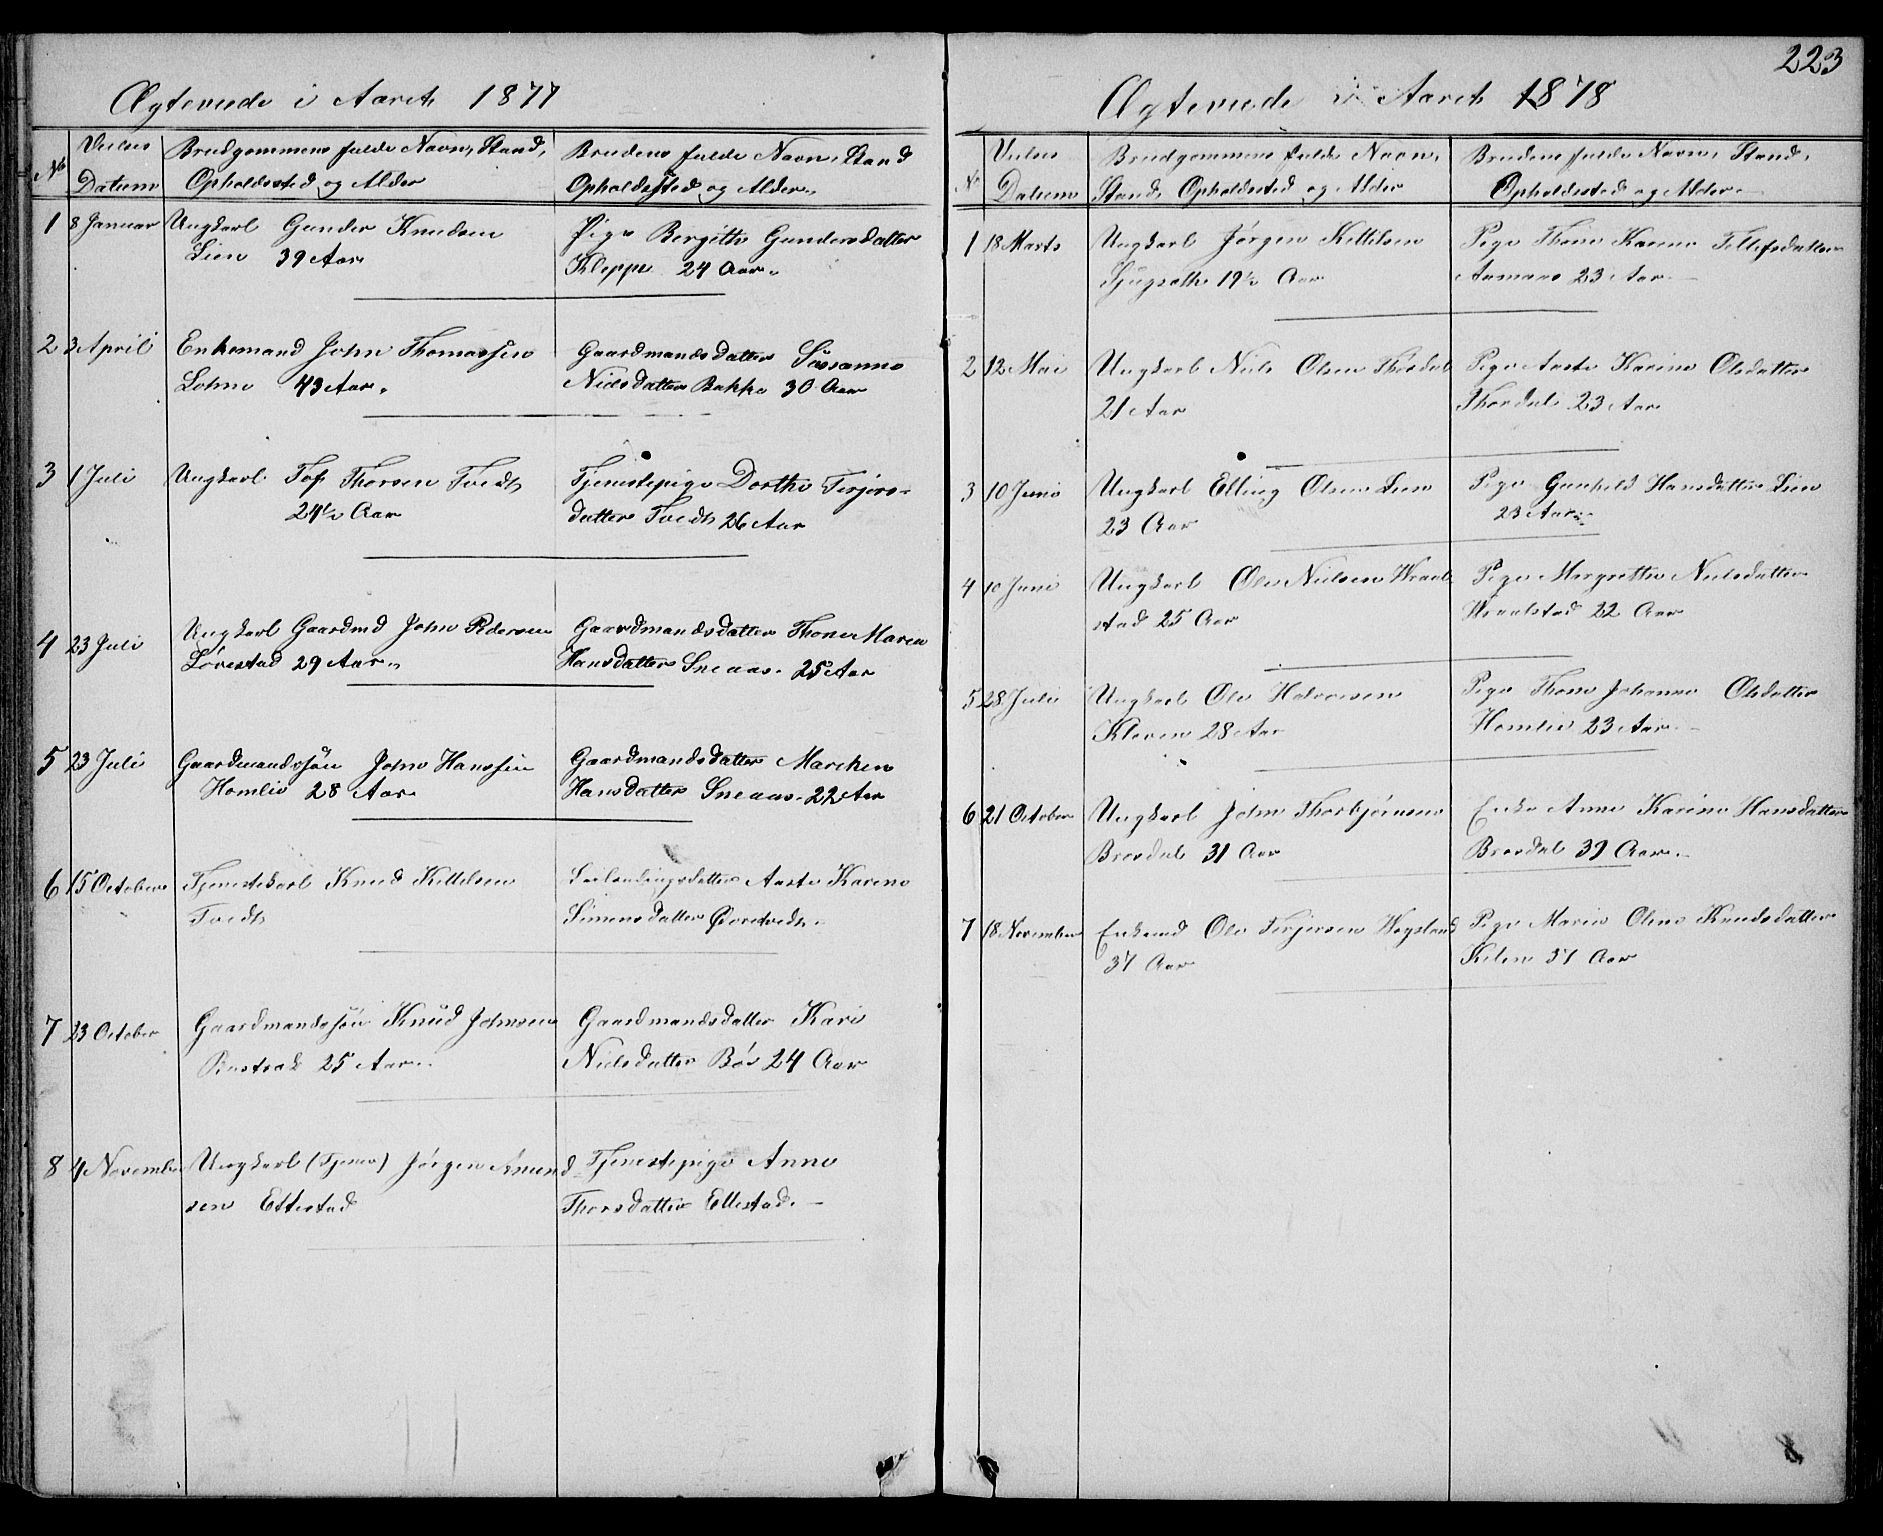 Ægteviede i Aaret 1877
No
Vielses Datum
Brudgommens fulde Navn, Stand, Opholdssted og Alder
Brudens fulde Navn, Stand Opholdssted og Alder
1 8 Januar Ungkarl Gunder Knudsen
Lien 39 Aar
Pige Bergithe Gundersdatter
Kleppe 24 Aar
2 3 April Enkemand John Thomassen
Lohne 43 Aar
Gaardmandsdatter Sussanne
Nielsdatter Bakke 30 Aar
3 1 Juli Ungkarl Tof Thorsen Tvedt
24½ Aar
Tjenestepige Dorthe Terjers-
datter Tvedt 26 Aar
4 23 Juli Ungkarl Gaardmd John Pedersen
Løvestad 29 Aar
Gaardmandsdatter Thone Maren
Hansdatter Sneaas 25 Aar
5 23 Juli Gaardmandssøn John Hanssen
Homlie 28 Aar
Gaardmandsdatter Marchen
Hansdatter Sneaas 22 Aar
6 15 October Tjenestekarl Knud Kittelsen
Tvedt
Leilændingsdatter Aaste Karine
Simensdatter Øvretvedt
7 23 October Gaardmandssøn Knud Johnsen
25 Aar
Gaardmandsdatter Kari
Nielsdatter Bøe 24 Aar
8 4 November Ungkarl (Tjener) Jørgen Amund
sen Ettestad
Tjenestepige Anne
Thorsdatter Ettestad
223
Ægteviede i Aaret 1878
No
Vielses Datum
Brudgommens fulde Navn,
Stand, Opholdssted og Alder
Brudens fulde Navn, Stand,
Opholdssted og Alder
1 18 Marts Ungkarl Jørgen Kittelsen
19½ Aar
Pige Thone Karine Tellefsdatter
23 Aar
2 12 Mai Ungkarl Niels Olsen Thordal
21 Aar
Pige Aaste Karine Olsdatter
Thordal 23 Aar
3 10 Juni Ungkarl Elling Olsen Lien
23 Aar
Pige Gunhild Hansdatter Lien
23 Aar
4 10 Juni Ungkarl Ole Nielsen Wraal
stad 25 Aar
Pige Margrethe Nielsdatter
Wraalstad 22 Aar
5 28 Juli Ungkarl Ole Halvorsen
Kleven 28 Aar
Pige Thone Johanne Olsdatter
Homlie 23 Aar
6 21 October Ungkarl John Thorbjørnsen
Brordal 31 Aar
Enke Anne Karine Hansdatter
Brordal 39 Aar
7 18 November Enkemd Ole Terjersen Høgsland
37 Aar
Pige Marie Oline Knudsdatter
Kilen 37 Aar